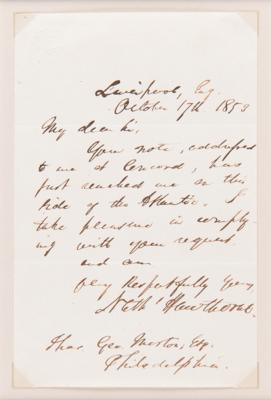 Liverpool, Eng.
October 17th 1853
My dear Sir,
Your note, addressed
to me at Concord, has
just reached me on this
side of the Atlantic. I
take pleasure in comply-
ing with your request
and am
Very Respectfully Yours,
Nath' Hawthorne.
Geo. Morton, Esq.
Philadelphia.